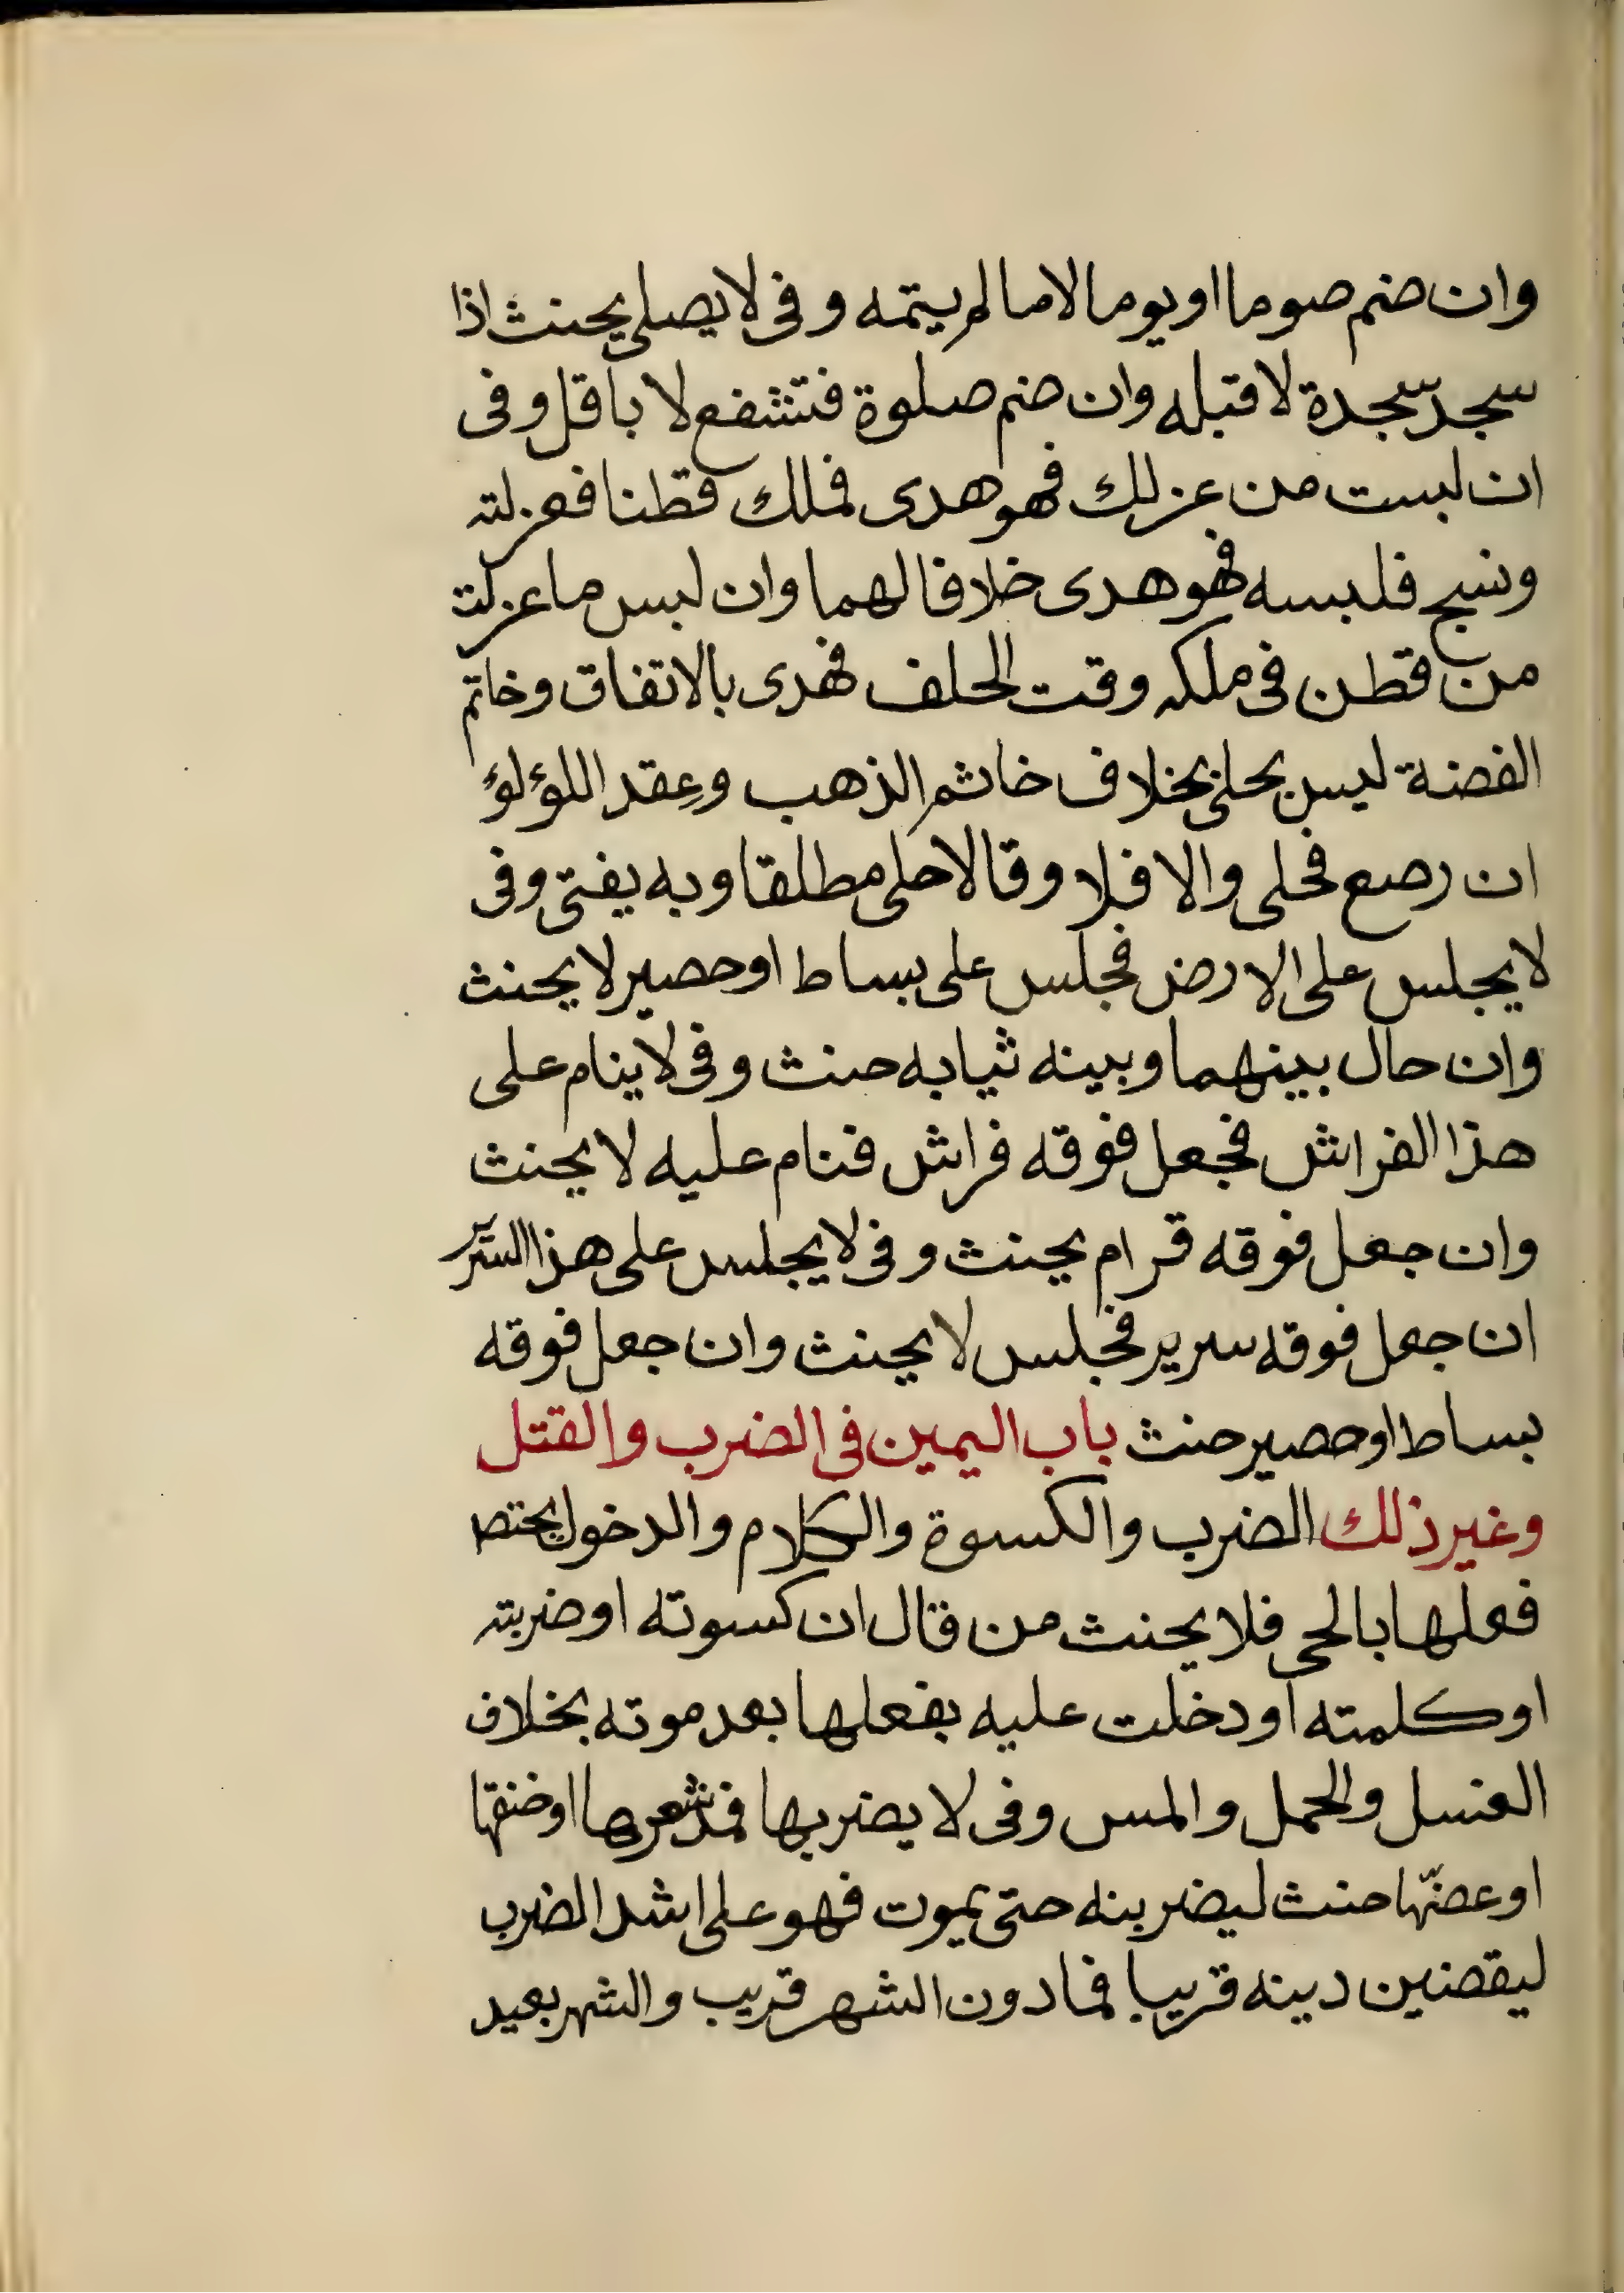 وان ضم صوما او يوما لا ما لم يتمه وفى لا يصلى يحنث اذا
سجد سجدة لا قبله وان ضم صلوة فتشفع لا باقل وفى
ان لبست من غزلك فهو هدى فملك قطنا فغزلته
ونسج فلبسه فهو هدى خلافا لهما وان لبس ما غزلت
من قطن فى ملكه وقت الحلف فهدى بالاتفاق وخاتم
الفضة ليس بحلى بخلاف خاتم الذهب وعقد اللؤلؤ
ان رصع فحلى والا فلا وقالا حلى مطلقا وبه يفتى وفى
لا يجلس على الارض فجلس على بساط او حصير لا يحنث
وان حال بينهما وبينه ثيابه حنث وفى لا ينام على
هذا الفراش فجعل فوقه فراش فنام عليه لا يحنث
وان جعل فوقه قرام يحنث وفى لا يجلس على هذا السرير
ان جعل فوقه سرير فجلس لا يحنث وان جعل فوقه
بساط او حصير حنث باب اليمين فى الضرب والقتل
وغير ذلك الضرب والكسوة والكلام والدخول يختص
فعلها بالحى فلا يحنث من قال ان كسوته او ضربته
او كلمته او دخلت عليه بفعلها بعد موته بخلاف
الغسل والحمل والمس وفى لا يضربها فمد شعرها او خنقها
او عضّها حنث ليضربنه حتى يموت فهو على اشد الضرب
ليقضين دينه قريبا فما دون الشهر قريب والشهر بعيد